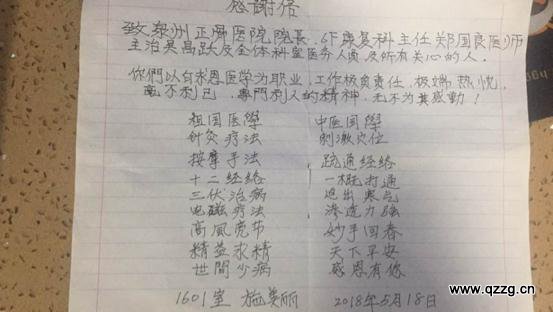 感謝信
致泉州正骨医院院長，6F康复科主任郑国良医师
主治吴昌跃及全体科室医务人员及所有关心的人．
你們以白求恩医学为职业，工作极负责任，极端热忱，
毫不利己，專門利人的精神，无不为其感動！
祖国医學　中医国學
针灸疗法　刺激穴位
按摩手法　疏通经络
十二经络　一概打通
三伏治病　逼出寒气
电磁疗法　渗透力强
高風亮节　妙手回春
精益求精　天下平安
世間少病　感恩有你
1601室　施美丽　2018年5月18日
www.qzzg.cn